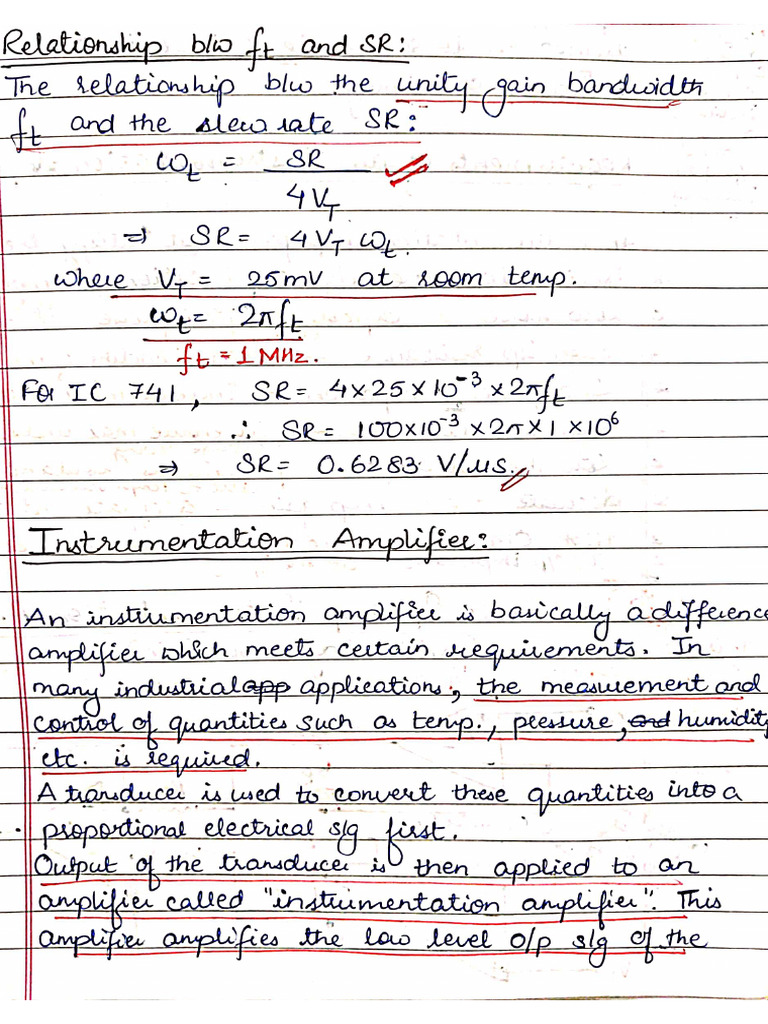 Relationship b/w ft and SR:
The relationship b/w the unity gain bandwidth
ft and the slew rate SR:
ωt = SR / 4VT
⇒ SR = 4VT ωt.
where VT = 25mV at room temp.
ωt = 2πft
ft = 1 MHz.
For IC 741, SR = 4×25×10⁻³×2πft
∴ SR = 100×10⁻³×2π×1×10⁶
⇒ SR = 0.6283 V/μs.
Instrumentation Amplifier:
An instrumentation amplifier is basically a difference
amplifier which meets certain requirements. In
many industrial app applications, the measurement and
control of quantities such as temp., pressure, and humidity
etc. is required.
A transducer is used to convert these quantities into a
proportional electrical s/g first.
Output of the transducer is then applied to an
amplifier called "instrumentation amplifier". This
amplifier amplifies the low level o/p s/g of the